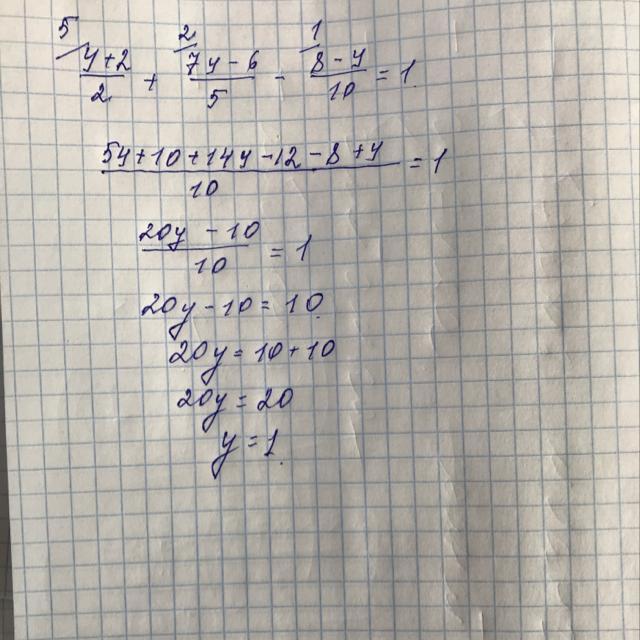 5/ (y+2)/2 + 2/ (7y-6)/5 - 1/ (8-y)/10 = 1
(5y+10+14y-12-8+y)/10 = 1
(20y-10)/10 = 1
20y-10=10
20y=10+10
20y=20
y=1.